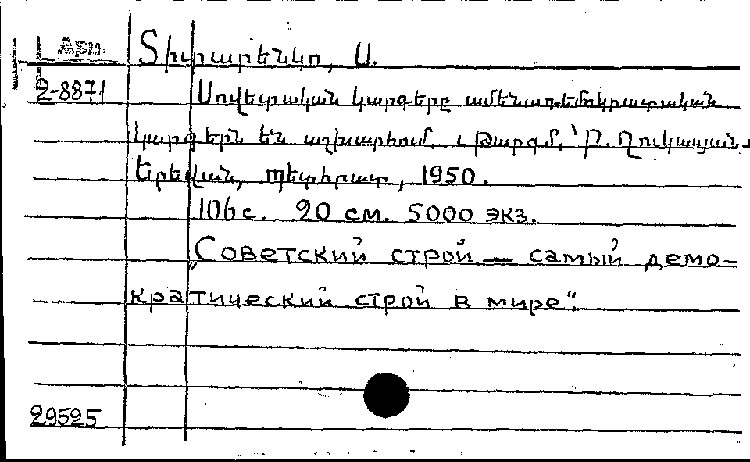 Арм.
2-8871
Տիտարենկո, Ս.
Սովետական կարգերը ամենադեմոկրատական
կարգերն են աշխարհում. Թարգմ.՝ Ր. Ղուկասյան.
Երեվան, պետհրատ, 1950.
106 с. 20 см. 5000 экз.
„Советский строй — самый демо-
кратический строй в мире“.
29525